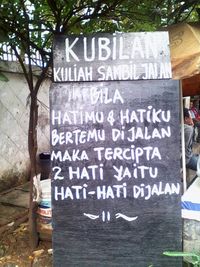 KUBILAN
KULIAH SAMBIL JALAN
BILA
HATIMU & HATIKU
BERTEMU DI JALAN
MAKA TERCIPTA
2 HATI YAITU
HATI-HATI DIJALAN